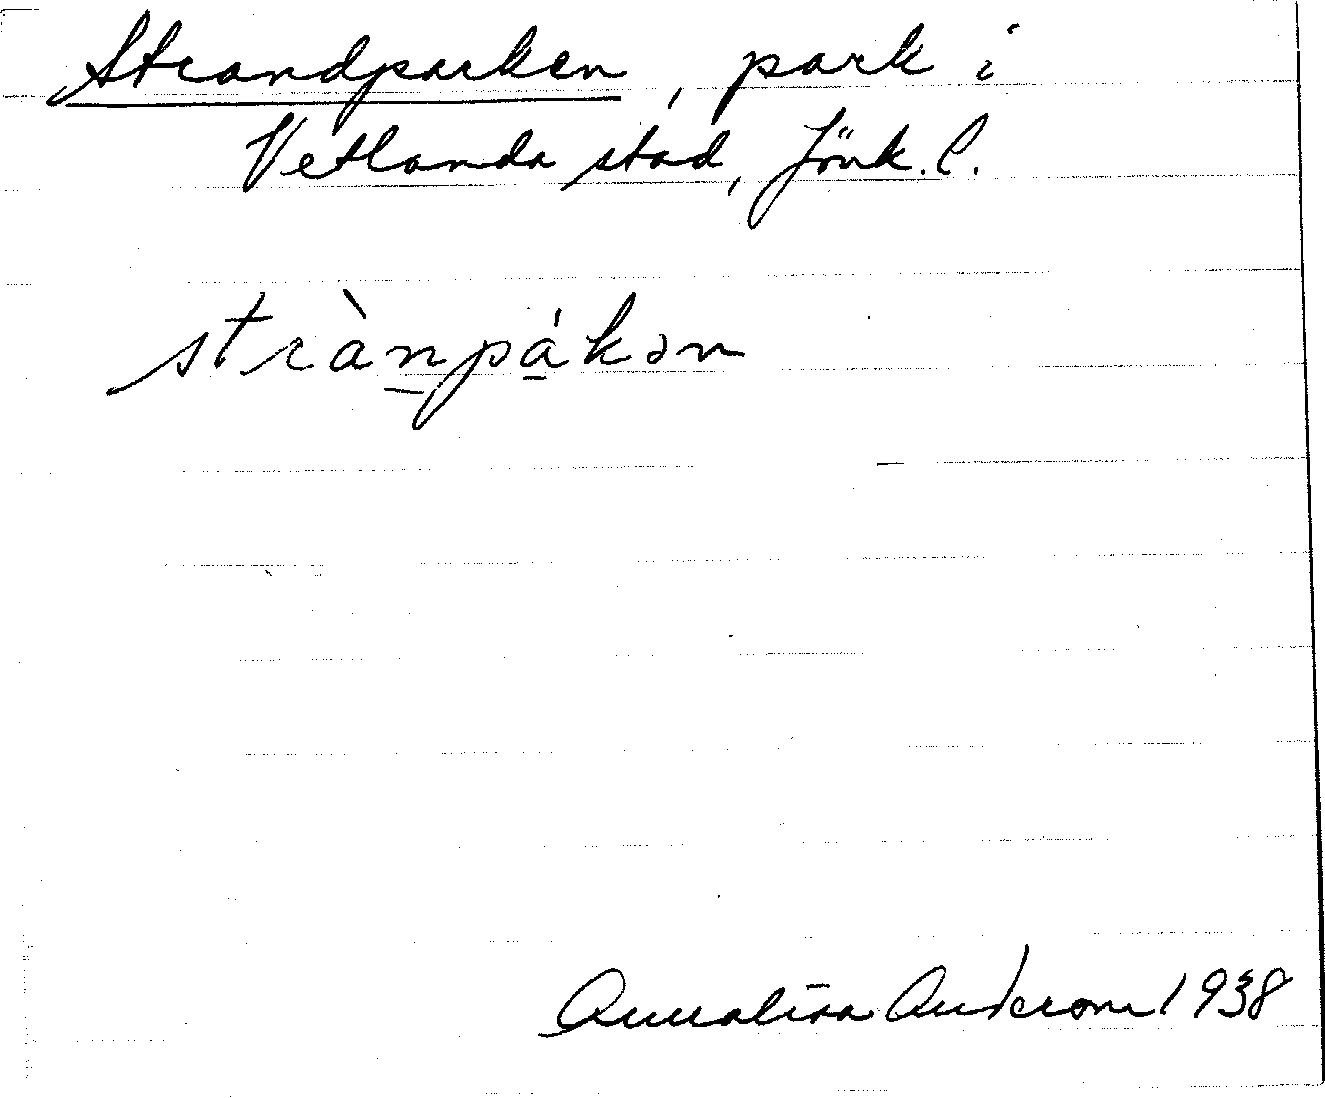 Strandparken, park i
Vetlanda stad, Jönk. l.
stràn̲pá̲kən
Annalisa Anderson 1938